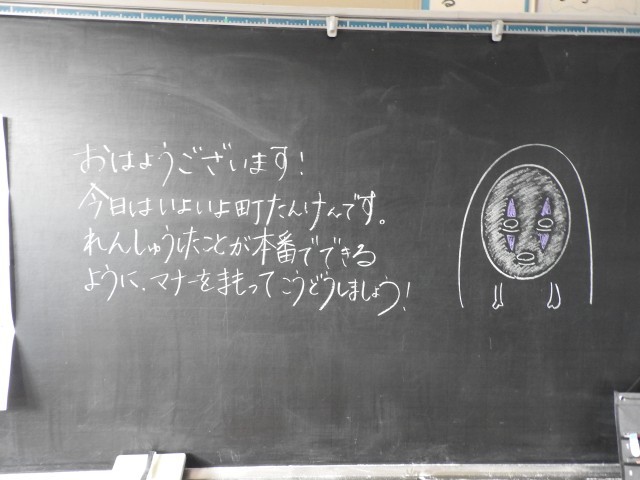 おはようございます！
今日はいよいよ町たんけんです。
れんしゅうしたことが本番でできる
ように、マナーをまもってこうどうしましょう！